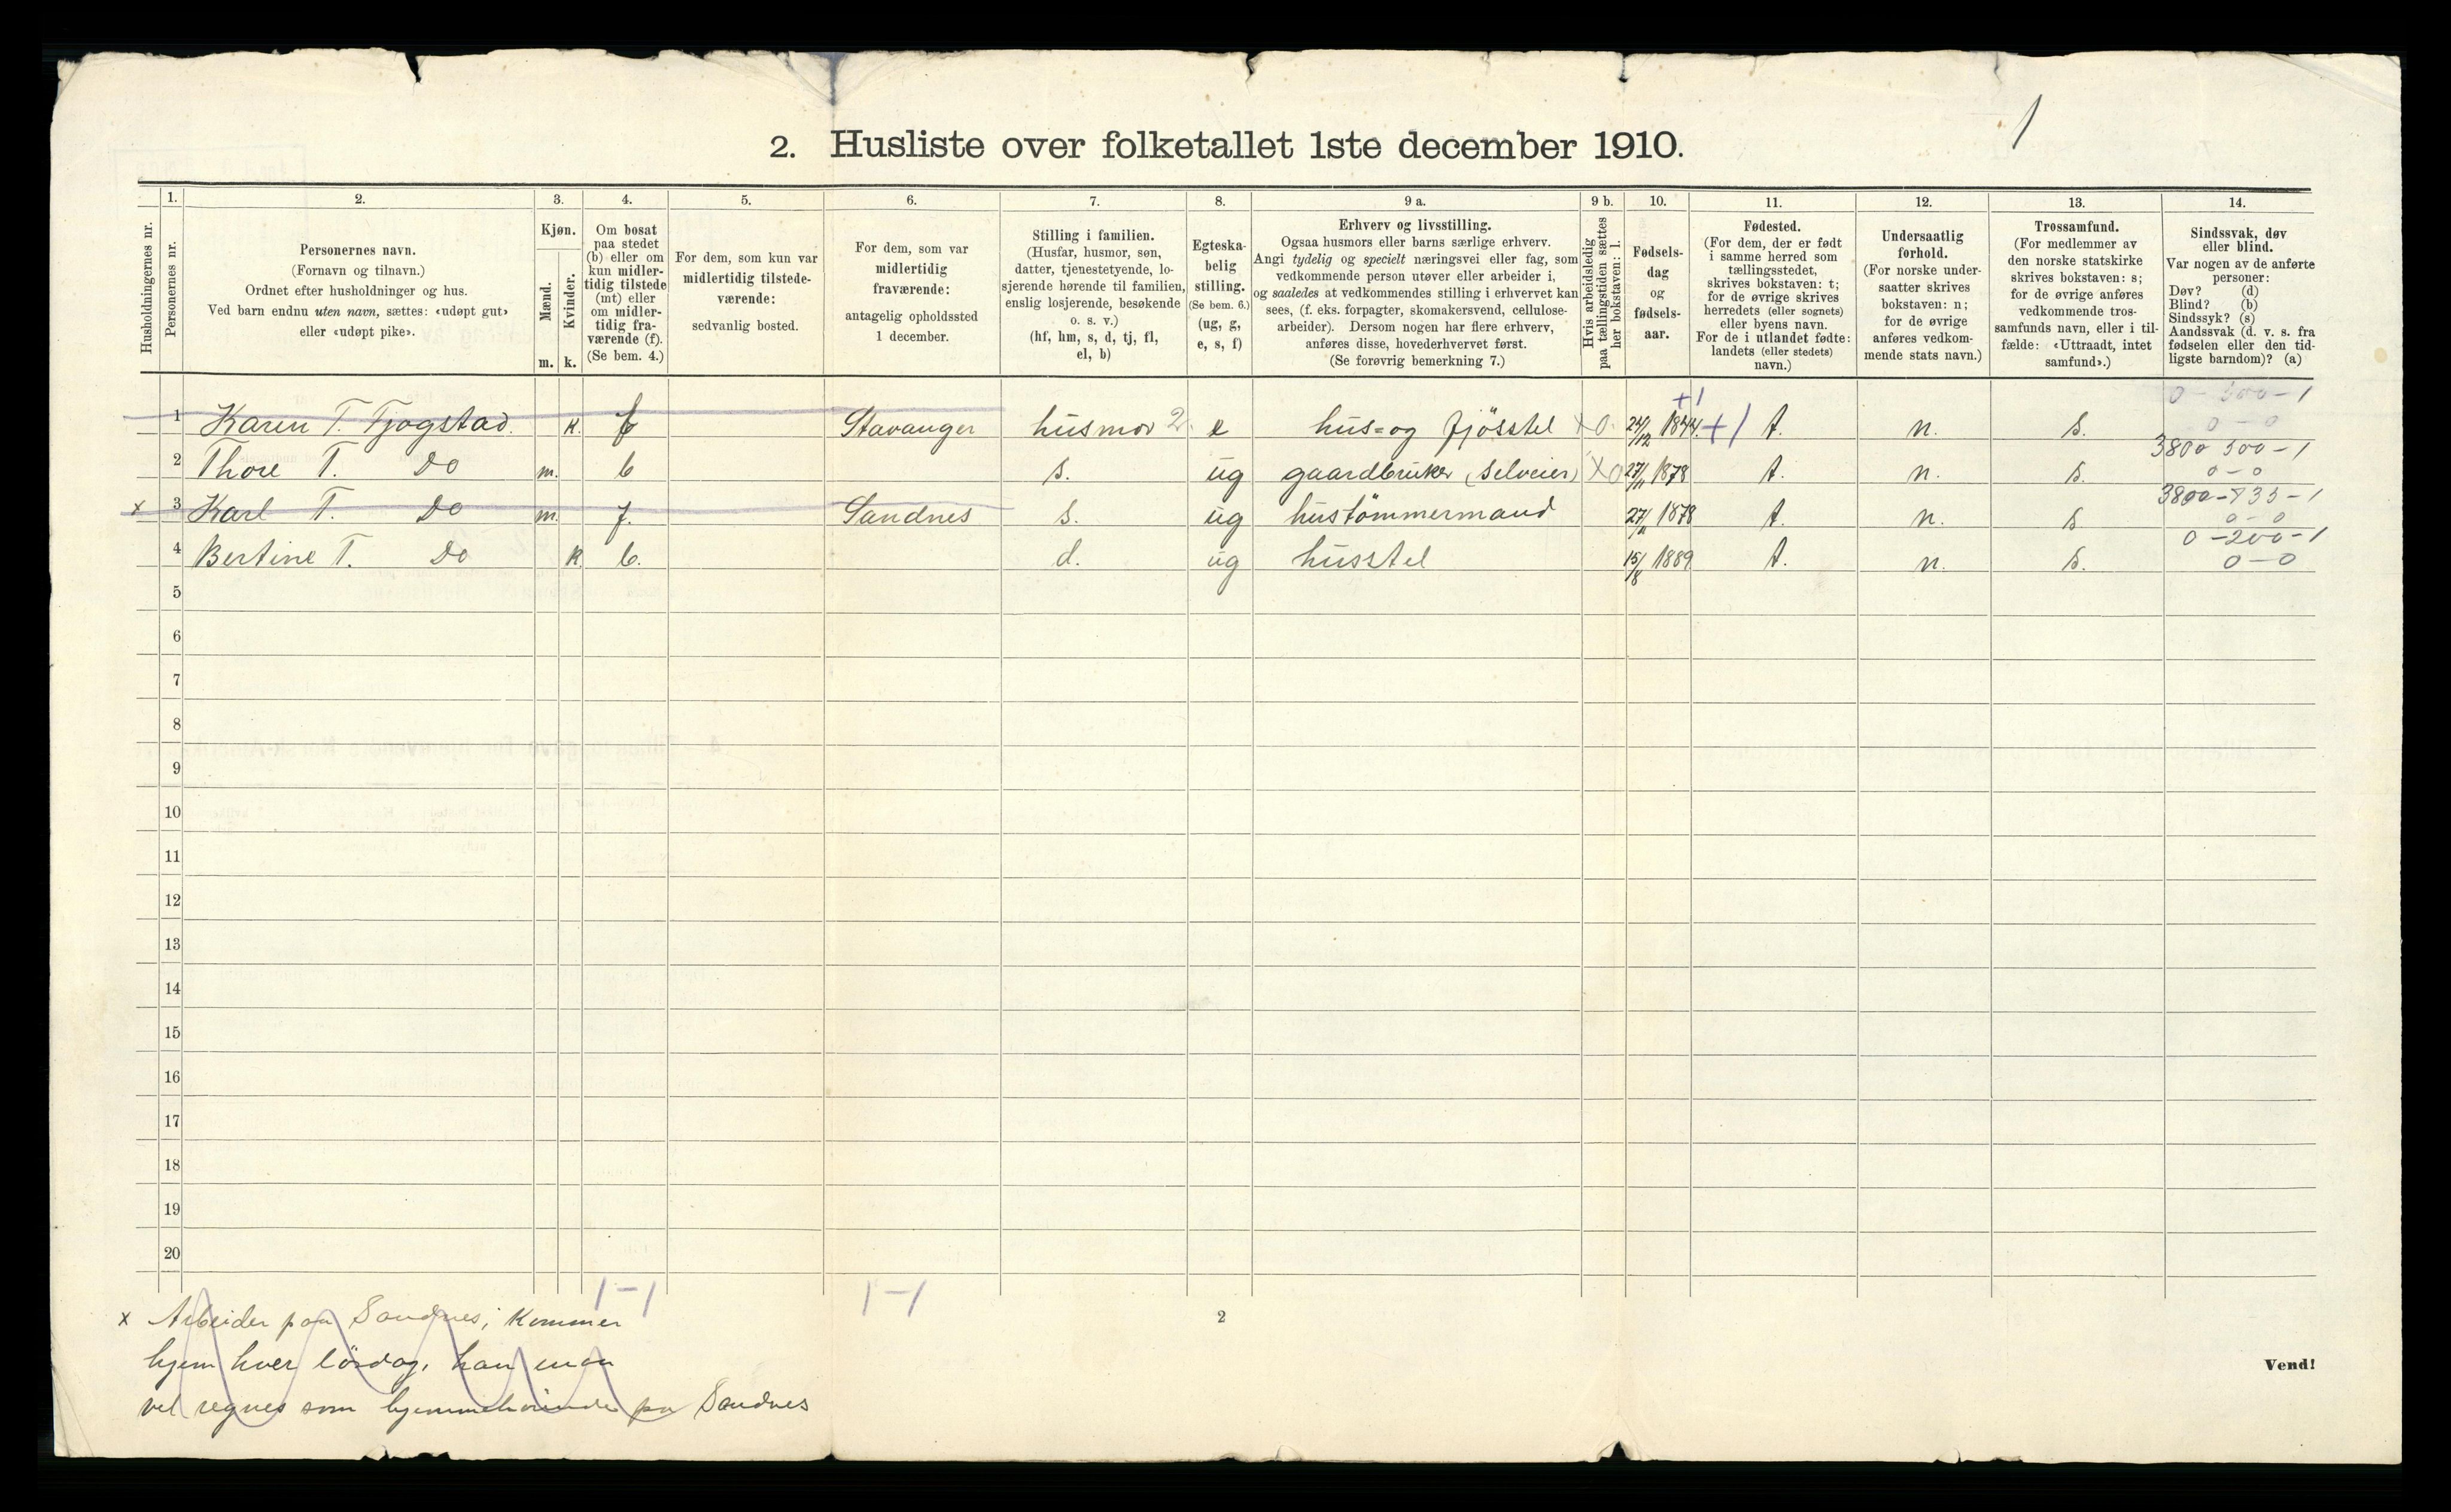 1
2. Husliste over folketallet 1ste december 1910.
Husholdningernes nr.
1.
Personernes nr.
2.
Personernes navn.
(Fornavn og tilnavn.)
Ordnet efter husholdninger og hus.
Ved barn endnu uten navn, sættes: «udøpt gut»
eller «udøpt pike».
3.
Kjøn.
Mænd.
Kvinder.
m. k.
4.
Om bosat
paa stedet
(b) eller om
kun midler-
tidig tilstede
(mt) eller
om midler-
tidig fra-
værende (f).
(Se bem. 4.)
5.
For dem, som kun var
midlertidig tilstede-
værende:
sedvanlig bosted.
6.
For dem, som var
midlertidig
fraværende:
antagelig opholdssted
1 december.
7.
Stilling i familien.
(Husfar, husmor, søn,
datter, tjenestetyende, lo-
sjerende hørende til familien,
enslig losjerende, besøkende
o. s. v.)
(hf, hm, s, d, tj, fl,
el, b)
8.
Egteska-
belig
stilling.
(Se bem. 6.)
(ug, g,
e, s, f)
9 a.
Erhverv og livsstilling.
Ogsaa husmors eller barns særlige erhverv.
Angi tydelig og specielt næringsvei eller fag, som
vedkommende person utøver eller arbeider i,
og saaledes at vedkommendes stilling i erhvervet kan
sees, (f. eks. forpagter, skomakersvend, cellulose-
arbeider). Dersom nogen har flere erhverv,
anføres disse, hovederhvervet først.
(Se forøvrig bemerkning 7.)
9 b.
Hvis arbeidsledig
paa tællingstiden sættes
her bokstaven: l.
10.
Fødsels-
dag
og
fødsels-
aar.
11.
Fødested.
(For dem, der er født
i samme herred som
tællingsstedet,
skrives bokstaven: t;
for de øvrige skrives
herredets (eller sognets)
eller byens navn.
For de i utlandet fødte:
landets (eller stedets)
navn.)
12.
Undersaatlig
forhold.
(For norske under-
saatter skrives
bokstaven: n;
for de øvrige
anføres vedkom-
mende stats navn.)
13.
Trossamfund.
(For medlemmer av
den norske statskirke
skrives bokstaven: s;
for de øvrige anføres
vedkommende tros-
samfunds navn, eller i til-
fælde: «Uttraadt, intet
samfund».)
14.
Sindssvak, døv
eller blind.
Var nogen av de anførte
personer:
Døv? (d)
Blind? (b)
Sindssyk? (s)
Aandssvak (d. v. s. fra
fødselen eller den tid-
ligste barndom)? (a)
0 - 300 - 1
1 Karen T. Tjogstad. k. f Stavanger husmor 2. e hus= og fjösstel x 0. 24/12 1844. +1 +1 t. n. s. 0 - 0
3800 500 - 1
2 Thore T. Do m. b s. ug gaardbruker (selveier) x 0 27/11 1878 t. n. s. 0 - 0
3800 - 735 - 1
x 3 Karl T. Do m. f. Sandnes s. ug hustömmermand 27/11 1878 t. n. s 0 - 0
0 - 200 - 1
4 Bertine T. Do k b. d. ug husstel 15/8 1889. t. n. s. 0 - 0
5
6
7
8
9
10
11
12
13
14
15
16
17
18
19
20
1 - 1 1 - 1
x Arbeider paa Sandnes; kommer
hjem hver lördag, han maa
vel regnes som hjemmehörende pa Sandnes
2
Vend!